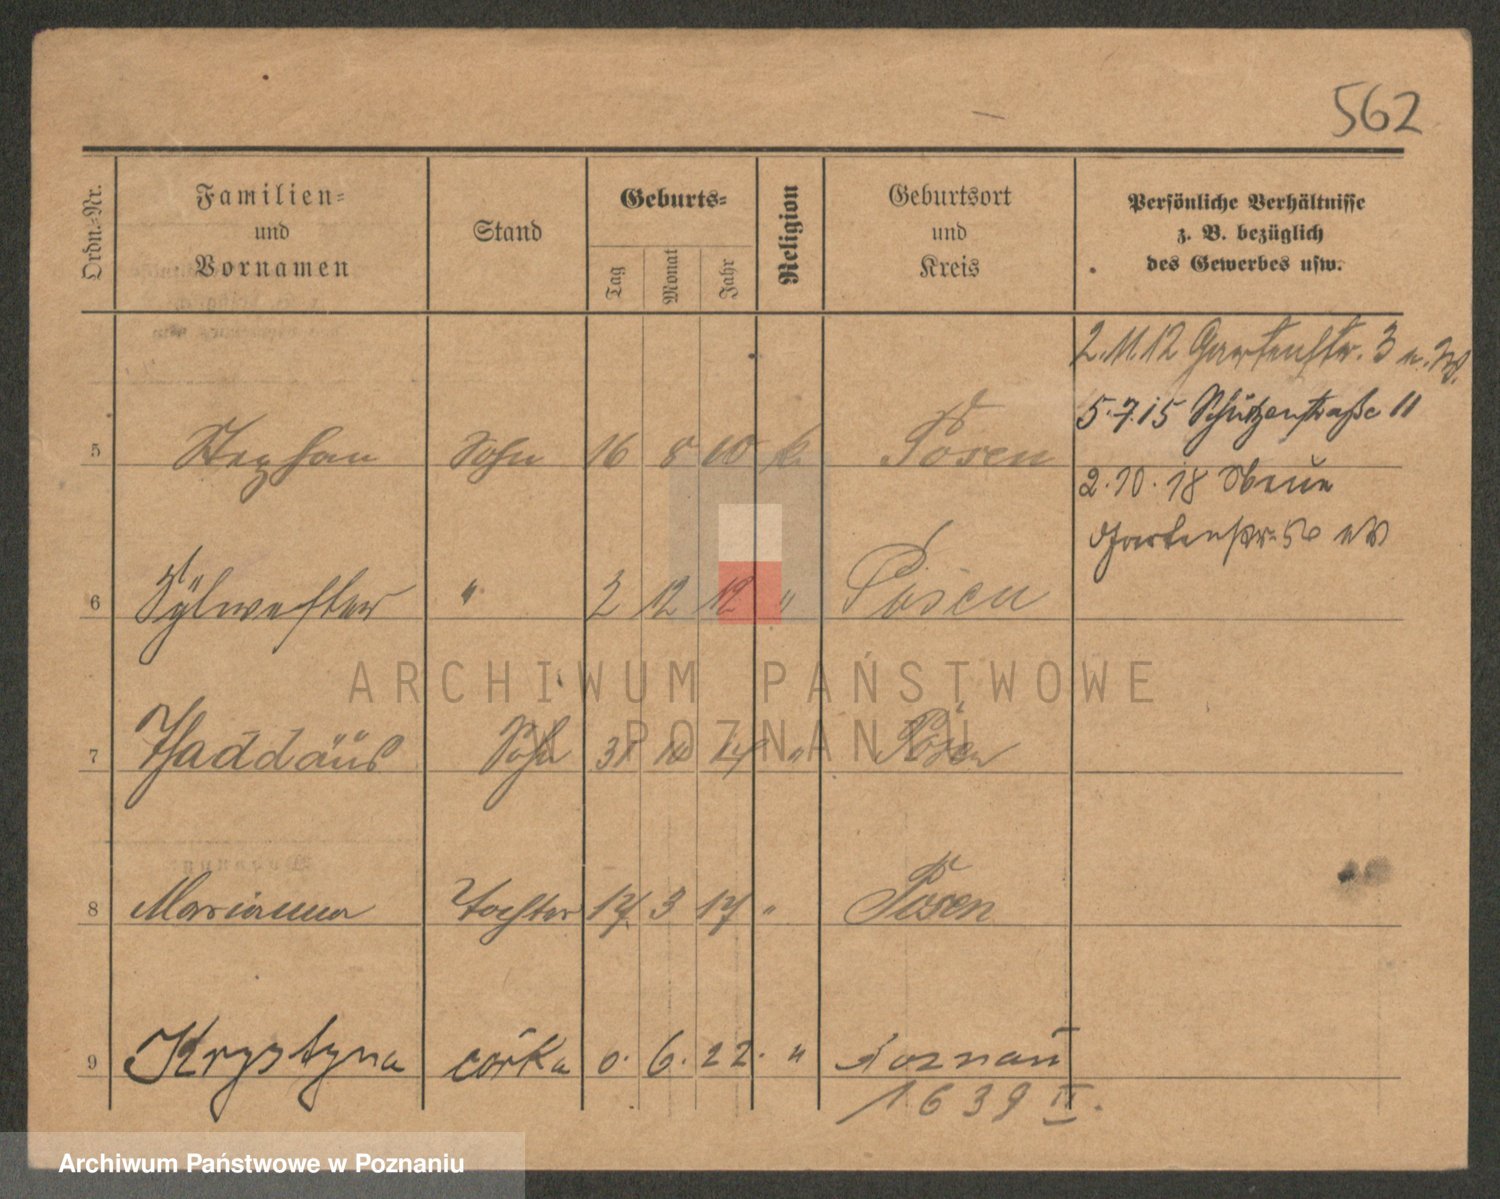 562
Ordn.-Nr.
Familien-
und
Vornamen
Stand
Geburts-
Tag
Monat
Jahr
Religion
Geburtsort
und
Kreis
Persönliche Verhältnisse
z. B. bezüglich
des Gewerbes usw.
2.11.12 Gartenstr. 3
5.7.15 Schützenstraße 11
5 Stephan Sohn 16 8 10 k. Posen
2.10.18 Neue
Gartenstr.
6 Sylwester " 2 12 12 " Posen
ARCHIWUM PAŃSTWOWE
W POZNANIU
7 Thaddäus Sohn 31 10 14 " Posen
8 Marianna Tochter 14 3 17 " Posen
9 Krystyna córka 6. 22. " Poznań
1639 II.
Archiwum Państwowe w Poznaniu